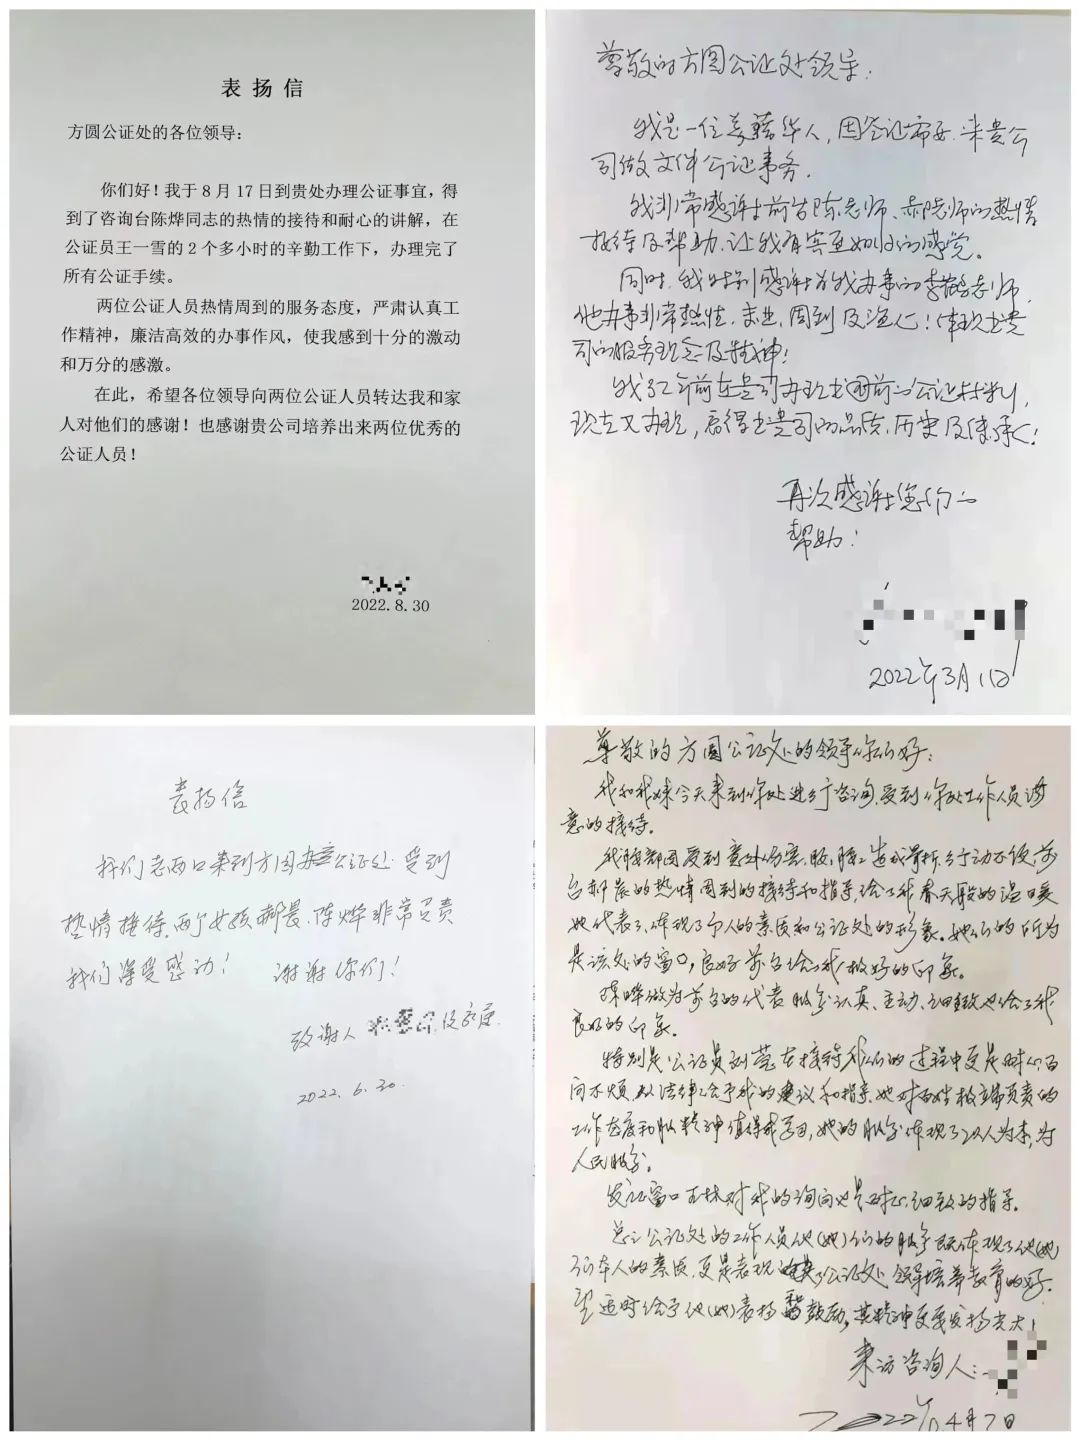 表扬信
方圆公证处的各位领导：
你们好！我于8月17日到贵处办理公证事宜，得
到了咨询台陈烨同志的热情的接待和耐心的讲解，在
公证员王一雪的2个多小时的辛勤工作下，办理完了
所有公证手续。
两位公证人员热情周到的服务态度，严肃认真工
作精神，廉洁高效的办事作风，使我感到十分的激动
和万分的感激。
在此，希望各位领导向两位公证人员转达我和家
人对他们的感谢！也感谢贵公司培养出来两位优秀的
公证人员！
2022.8.30
尊敬的方圆公证处领导：
我是一位美籍华人，因签证需要，来贵公
司做文件公证事务。
我非常感谢前台陈老师、郝老师的热情
接待及帮助，让我有宾至如归的感觉。
同时，我特别感谢为我办事的李老师，
他办事非常热情、专业、周到及渲人！体现出贵
司的服务理念及精神！
我32年前在贵司办理出国前的公证材料，
现在又办理，看得出贵司的品质、历史及传承！
再次感谢您们的
帮助！
2022年3月1日
表扬信
我们老两口来到方圆公证处受到
热情接待，两个女孩郝晨、陈烨非常负责
我们深受感动！ 谢谢你们！
致谢人
2022.6.30.
尊敬的方圆公证处的领导你们好：
我和我妹今天来到你处进行咨询，受到你处工作人员满
意的接待。
我腿部因受到意外伤害，造成骨折，行动不便，前
台郝晨的热情周到的接待和指导，给了我春天般的温暖
她代表了、体现了个人的素质和公证处的形象。她们的所为
是该处的窗口，良好前台给了我极好的印象。
陈烨做为前台的代表服务认真、主动、细致也给了我
良好的印象。
特别是公证员刘莹在接待我们的过程中更是耐心百
问不烦，从法律上给予我的建议和指导，她对百姓极端负责的
工作态度和服务精神值得我学习，她的服务体现了以人为本，为
人民服务。
发证窗口王林对我的询问也是耐心细致的指导。
总之公证处的工作人员他(她)们的服务既体现了他(她)
们本人的素质，更是表现了公证处领导培养教育的好。
望适时给予他(她)表扬鼓励，其精神更要发扬光大！
来访咨询人：
2022年4月7日